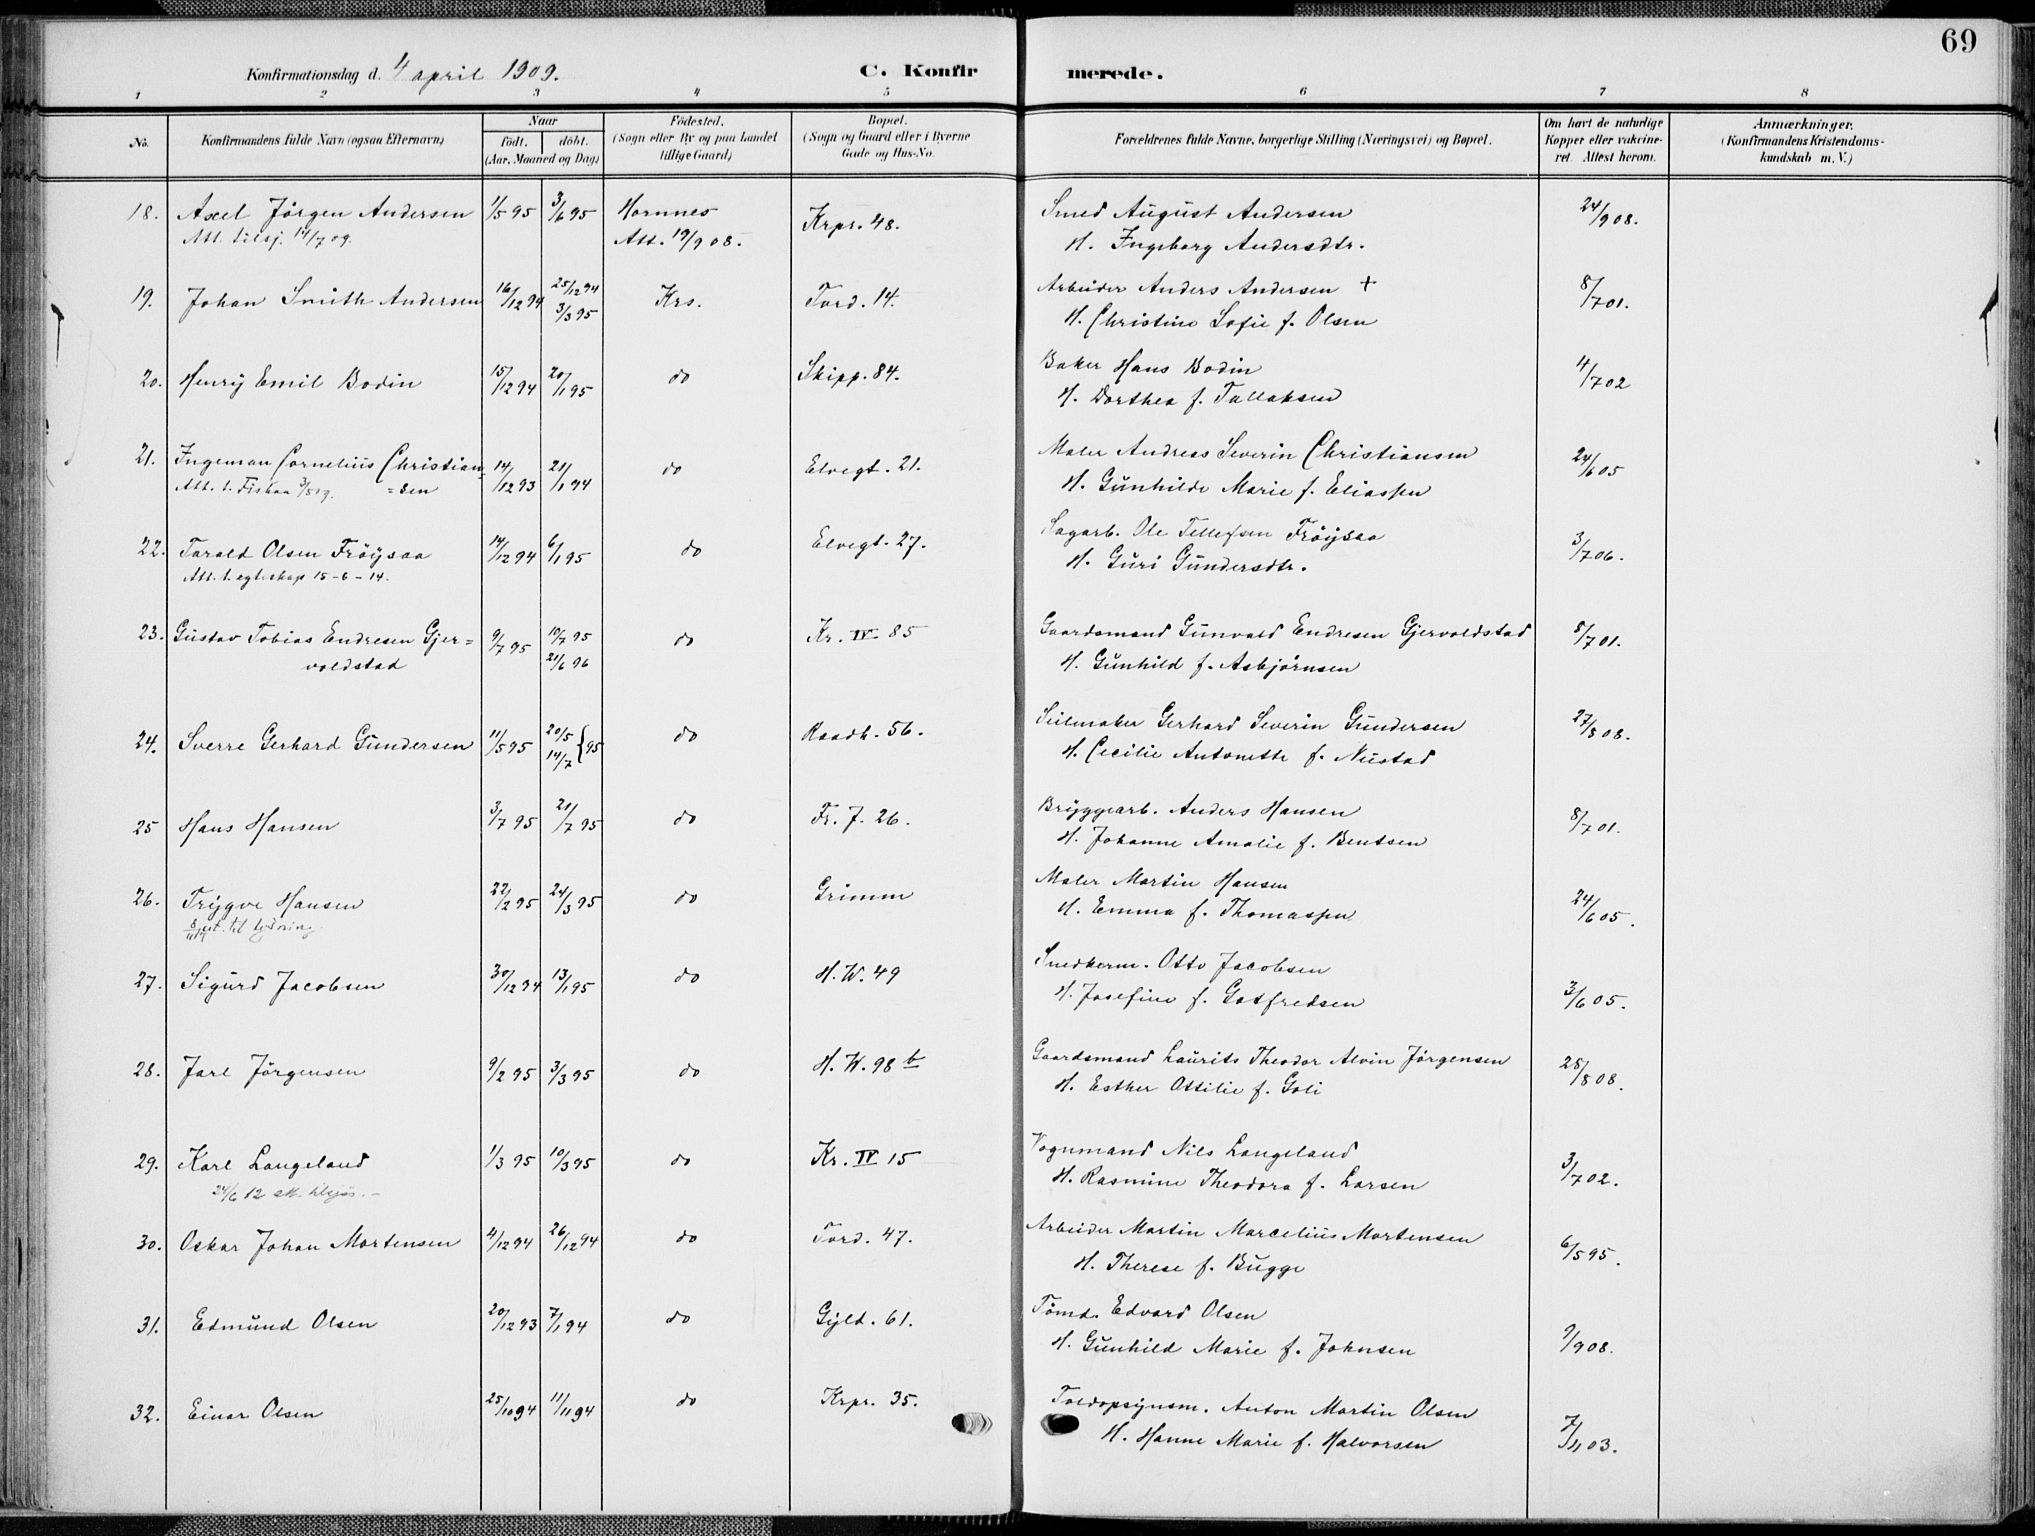 69
Konfirmationsdag d. 4 april 1909.
C. Konfirmerede.
1 2 3 4 5 6 7 8
No.
Konfirmandens fulde Navn (ogsaa Efternavn)
Naar
født. døbt.
(Aar, Maaned og Dag)
Fødested.
(Sogn eller By og paa Landet
tillige Gaard)
Bopæl.
(Sogn og Gaard eller i Byerne
Gade og Hus-No.
Forældrenes fulde Navne, borgerlige Stilling (Næringsvei) og Bopæl.
Om havt de naturlige
Kopper eller vakcine-
ret. Attest herom.
Anmærkninger.
(Konfirmandens Kristendoms-
kundskab m. V.)
18. Axel Jørgen Andersen 1/5 95 3/6 95 Hornnes Krpr. 48. Smed August Andersen 24/9 08.
Att. tilsj. 14/7 09. Att. 19/9 08. H. Ingeborg Andersdtr.
19. Johan Smith Andersen 16/12 94 25/12 94 3/3 95 Krs. Tord. 14. Arbeider Anders Andersen + 8/7 01.
H. Christine Sofie f. Olsen
20. Henry Emil Bodin 15/12 94 20/1 95 do Skipp. 84. Baker Hans Bodin 4/7 02
H. Dorthea f. Tallaksen
21. Ingeman Cornelius Christian= 14/12 93 21/1 94 do Elvegt. 21. Maler Andreas Severin Christiansen 24/6 05
Att. t. Fiskaa =sen H. Gunhilde Marie f. Eliassen
22. Tarald Olsen Frøysaa 14/12 94 6/1 95 do Elvegt. 27. Sagarb. Ole Tellefsen Frøysaa 3/7 06.
Att. t. egteskap 15-6-14. H. Guri Gundersdtr.
23. Gustav Tobias Endresen Gjer= 9/7 95 10/7 95 do Kr. IV 85 Gaardsmand Gunvald Endresen Gjervoldstad 8/7 01.
voldstad 21/6 96 H. Gunhild f. Asbjørnsen
24. Sverre Gerhard Gundersen 11/5 95 20/5 14/7 } 95 do Raadh. 56. Seilmaker Gerhard Severin Gundersen 27/8 08.
H. Cecilie Antonette f. Nustad
25 Hans Hansen 3/7 95 21/7 95 do Fr. J. 26. Bryggearb. Anders Hansen 8/7 01.
H. Johanne Amalie f. Bentsen
26. Trygve Hansen 22/2 95 24/3 95 do Grimm Maler Martin Hansen 24/6 05.
att. til lysning H. Emma f. Thomassen
27. Sigurd Jacobsen 30/12 94 13/1 95 do H. W. 49 Snedkerm. Otto Jacobsen 3/6 05.
H. Josefine f. Gotfredsen
28. Jarl Jørgensen 9/2 95 3/3 95 do H. W. 98 b Gaardsmand Laurits Theodor Alvin Jørgensen 28/8 08.
H. Esther Ottilie f. Goli
29. Karl Langeland 1/3 95 10/3 95 do Kr. IV 15 Vognmand Nils Langeland 3/7 02.
24/6 12 att. tilsjøs. – H. Rasmine Theodora f. Larsen
30. Oskar Johan Mortensen 4/12 94 26/12 94 do Tord. 47. Arbeider Martin Marcelius Mortensen 6/5 95.
H. Therese f. Bugge
31. Edmund Olsen 20/12 93 7/1 94 do Gyld. 61. Tømd. Edvard Olsen 9/9 08.
H. Gunhild Marie f. Johnsen
32. Einar Olsen 25/10 94 11/11 94 do Krpr. 35. Toldopsynsm. Anton Martin Olsen 7/11 03.
H. Hanne Marie f. Halvorsen